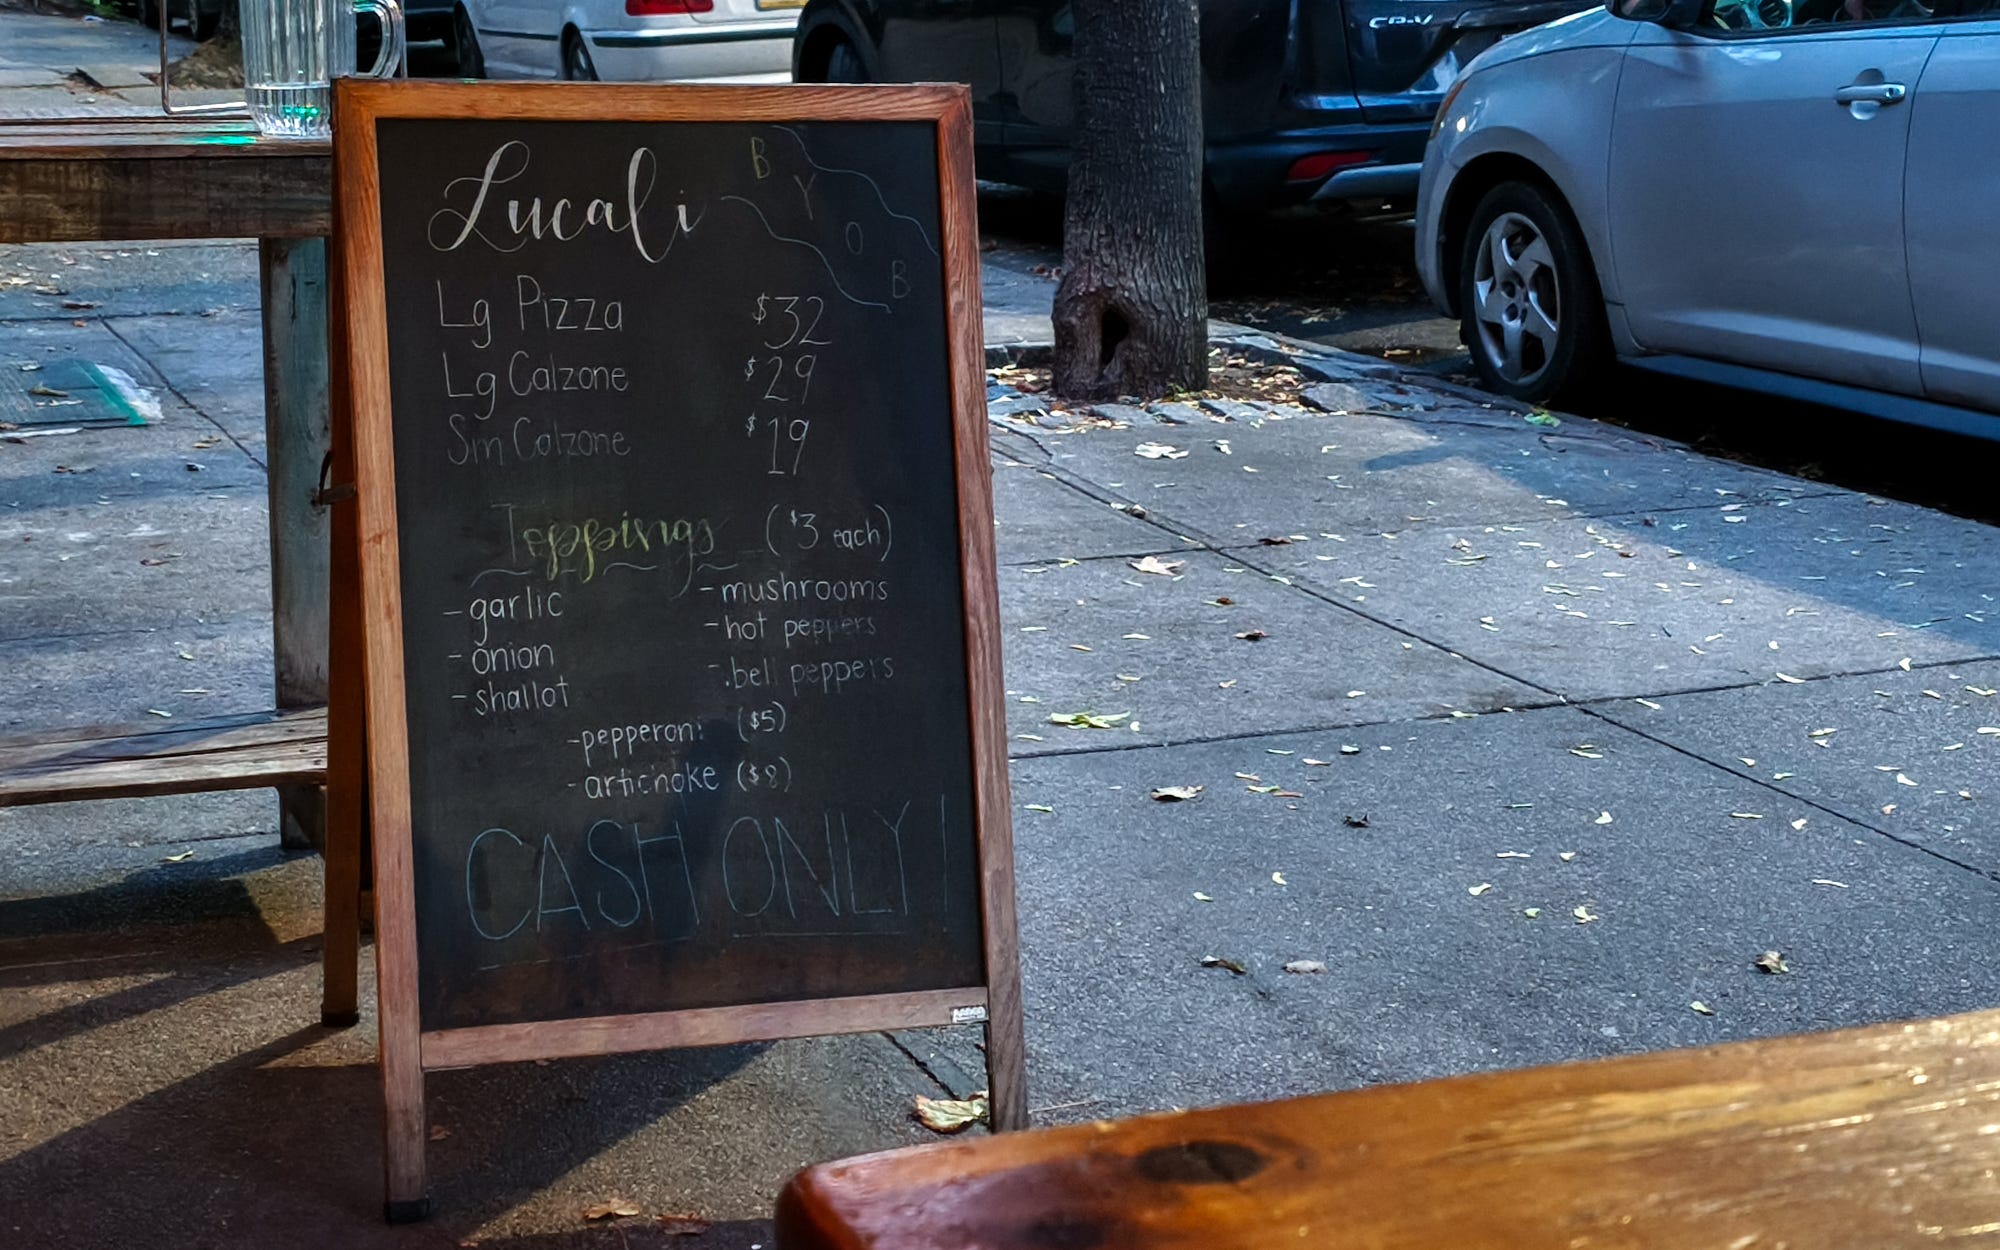 Lucali
B
Y
O
B
Lg Pizza $32
Lg Calzone $29
Sm Calzone $19
Toppings ($3 each)
- garlic
- onion
- shallot
- mushrooms
- hot peppers
- bell peppers
- pepperoni ($5)
- artichoke ($8)
CASH ONLY!
CR-V